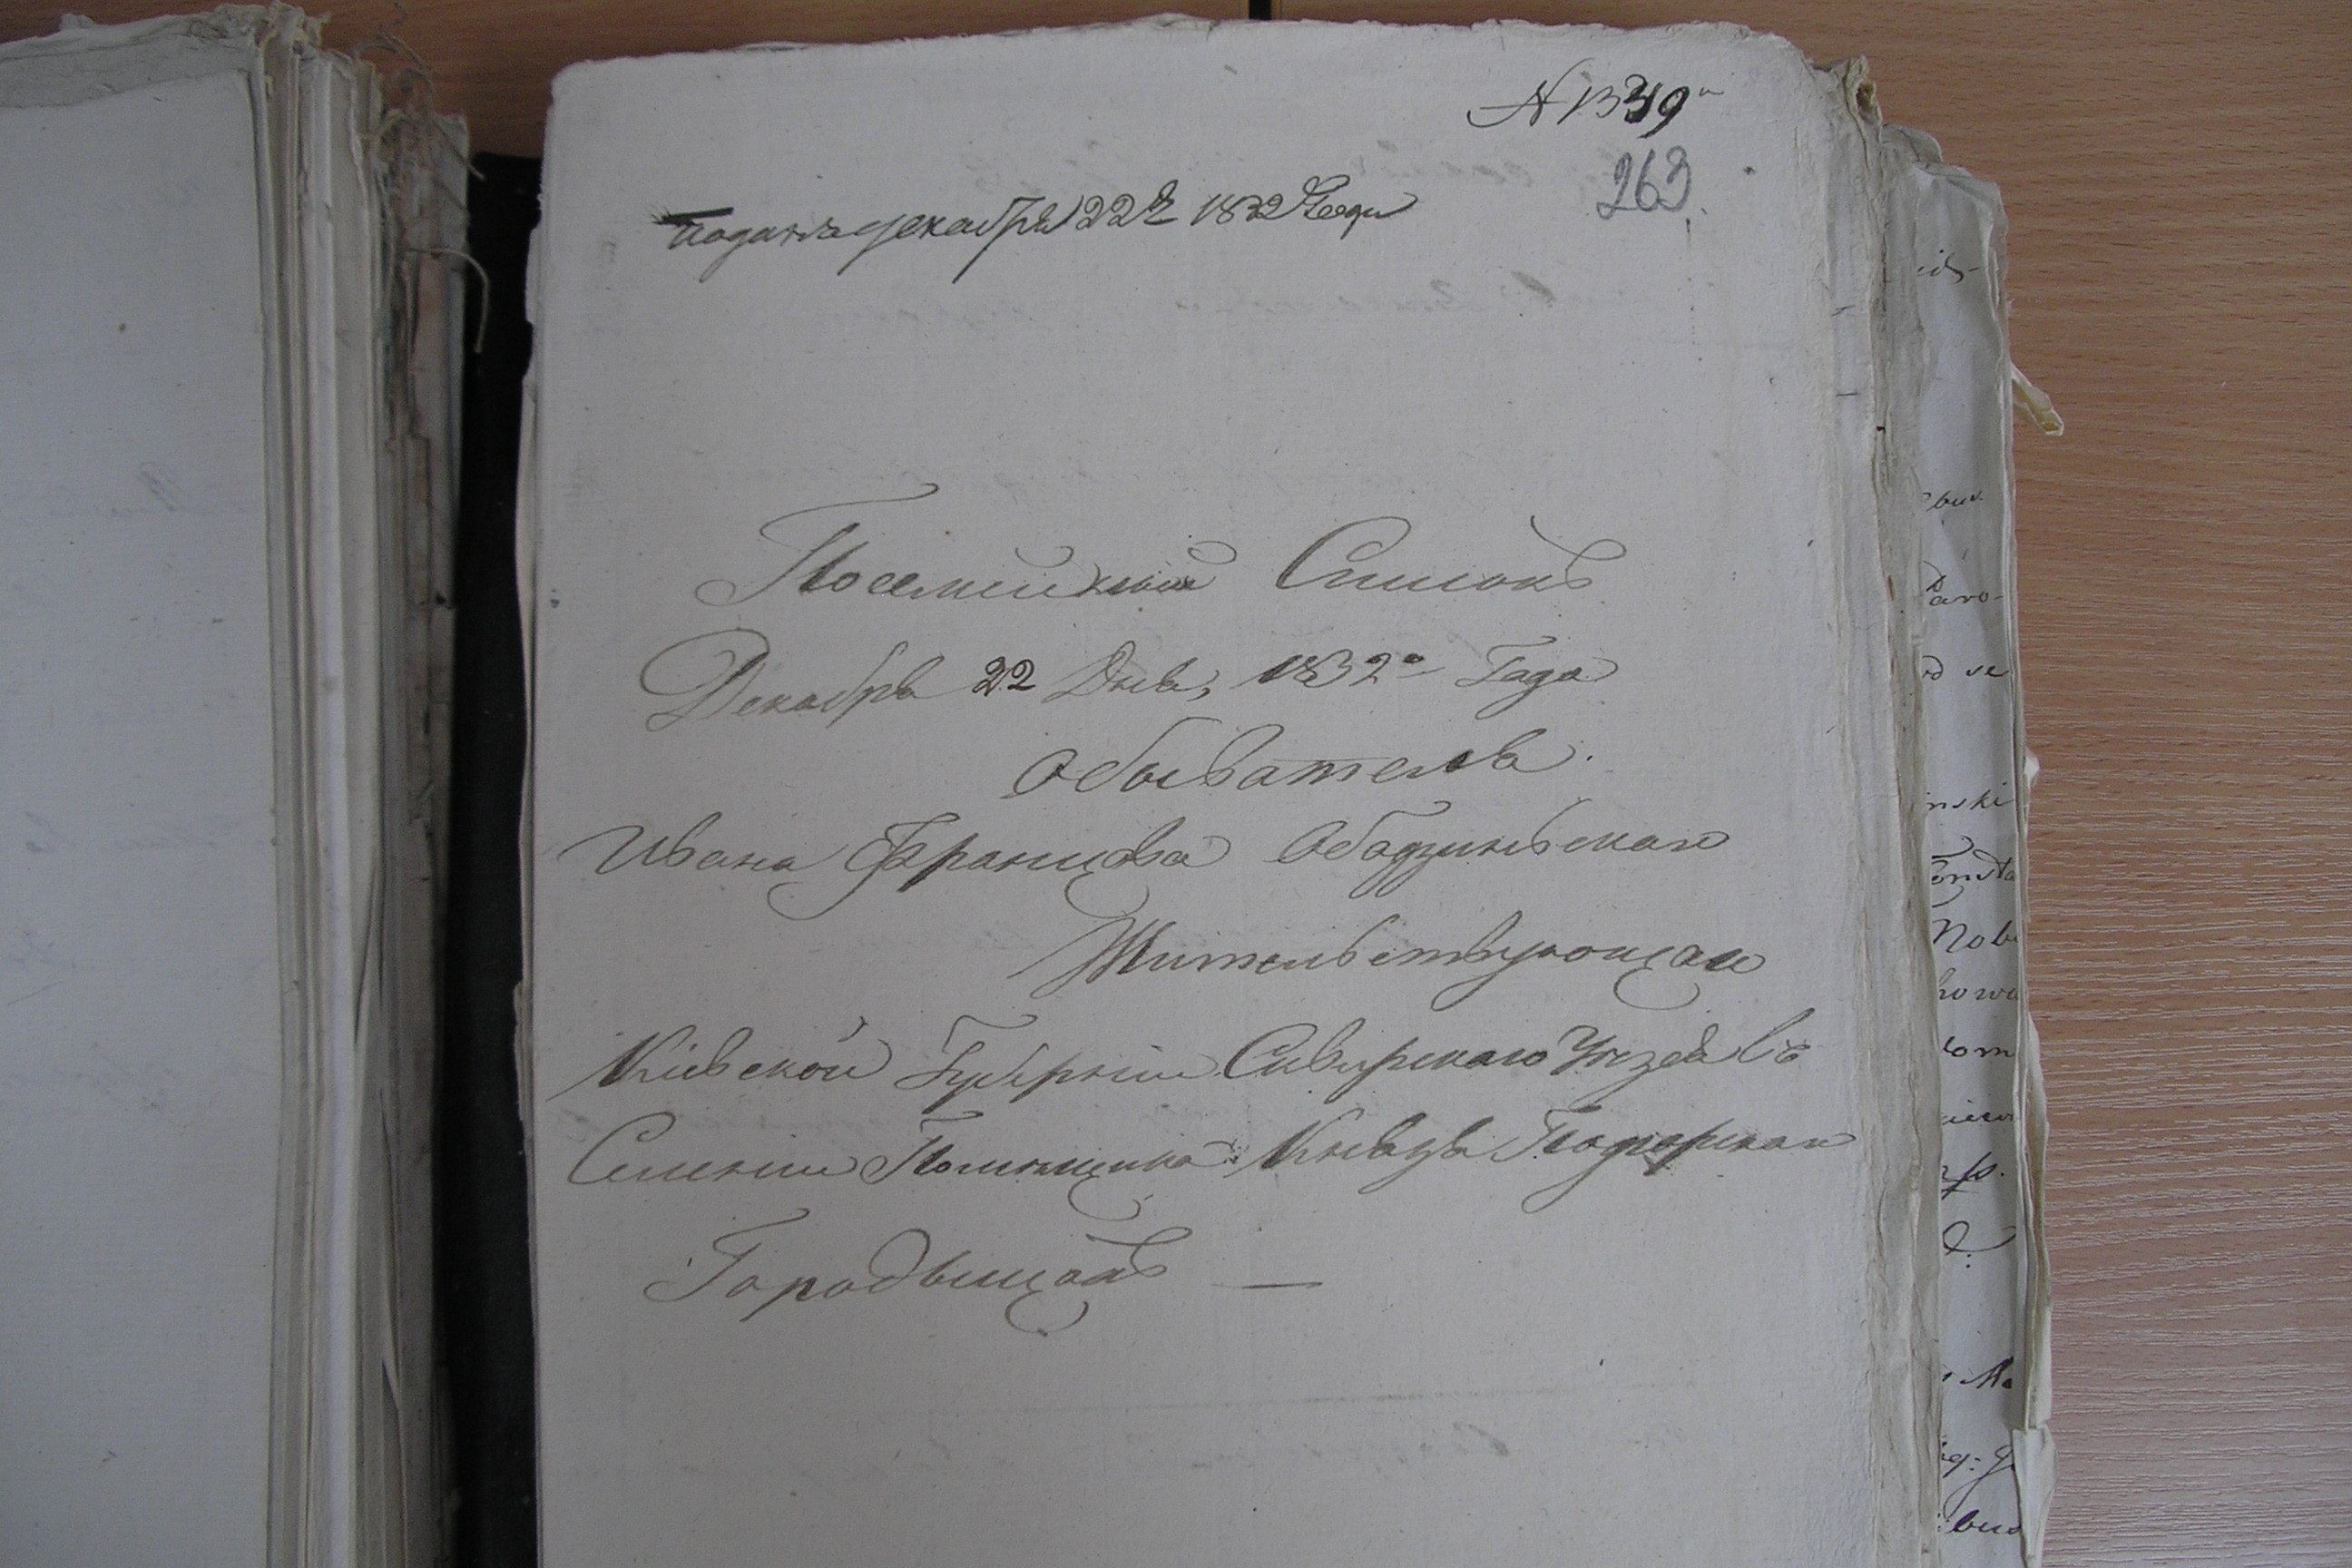 N 1349
263
Поданъ декабря 22 1832 Года
Посемейный Списокъ
Декабря 22 Дня, 1832го Года
Обывателя.
Ивана Францова Ободзинскаго
Жительствующаго
Кіевской Губерніи Сквирскаго Уезда Въ
Селении Помѣщика Князя
Городыщахъ —